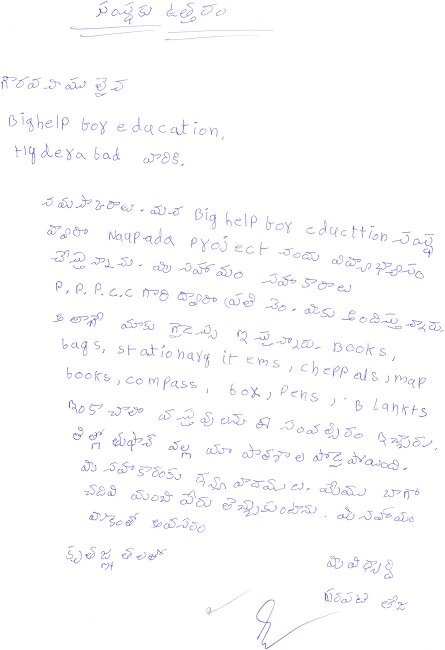 సంస్థకు ఉత్తరం
గౌరవనీయులైన
Bighelp for education,
Hyderabad వారికి,
నమస్కారాలు. మన Big help for educttion సంస్థ
ద్వారా Naupada project నందు విద్యాభ్యాసం
చేస్తున్నాను. మీ సహాయం సహకారాలు
P.P.P.C.C గారి ద్వారా ప్రతి నెల. మాకు అందిస్తున్నారు
అలాగే మాకు డ్రెస్సు ఇస్తున్నారు. Books,
bags, stationary items, cheppals, map
books, compass, box, pens, Blankts
ఇంకా చాలా వస్తువులను ఈ సంవత్సరం ఇచ్చారు.
తిత్లీ తుఫాన్ వల్ల మా పాఠశాల పాడైపోయింది.
మీ సహకారంకు ధన్యవాదములు. మేము బాగా
చదివి మంచి పేరు తెచ్చుకుంటాను. మీ సహాయం
మాకెంతో అవసరం
కృతజ్ఞతలతో
మీ విద్యార్థి
తేజ